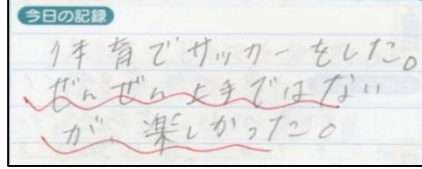 今日の記録
体育でサッカーをした。
ぜんぜん上手ではない
が、楽しかった。